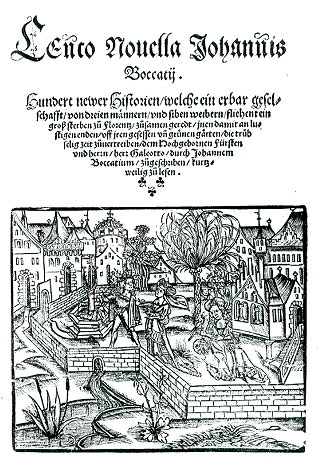 Cento Novella Johannis
Boccatij.
Hundert newer Historien / welche ein erbar gesel-
schafft / von dreien männern / vnd siben weibern / fliehent ein
groß sterben zů Florentz / zůsamen geredt / jnen damit an lu-
stigen enden / vff jren gesessen vñ grünen gärten / die trüb
selig zeit zůuertreiben / dem Hochgebornen Fürsten
vnd herrn / herr Galeotto / durch Johannem
Boccatium / zůgeschriben / kurtz-
weilig zů lesen.